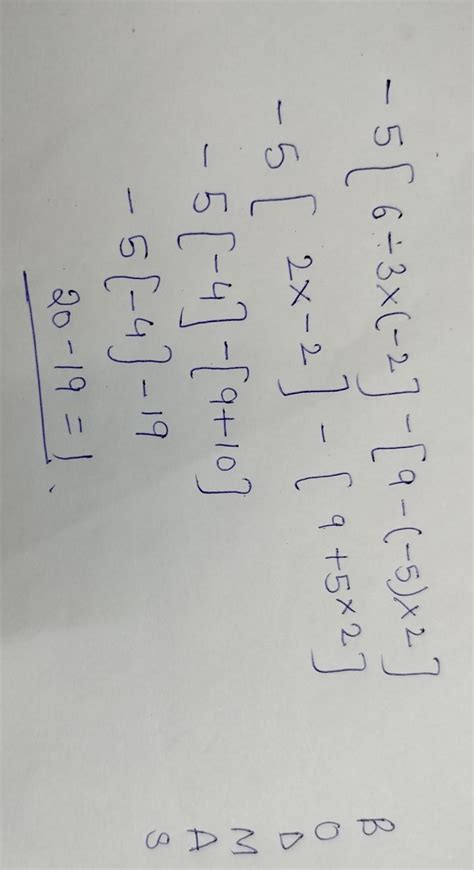 - 5 [ 6 ÷ 3 × (-2] - [ 9 - (-5) × 2 ]
- 5 [ 2 × - 2 ] - [ 9 + 5 × 2 ]
- 5 [-4] - [ 9 + 10 ]
- 5 [-4] - 19
20 - 19 = 1.
B O D M A S